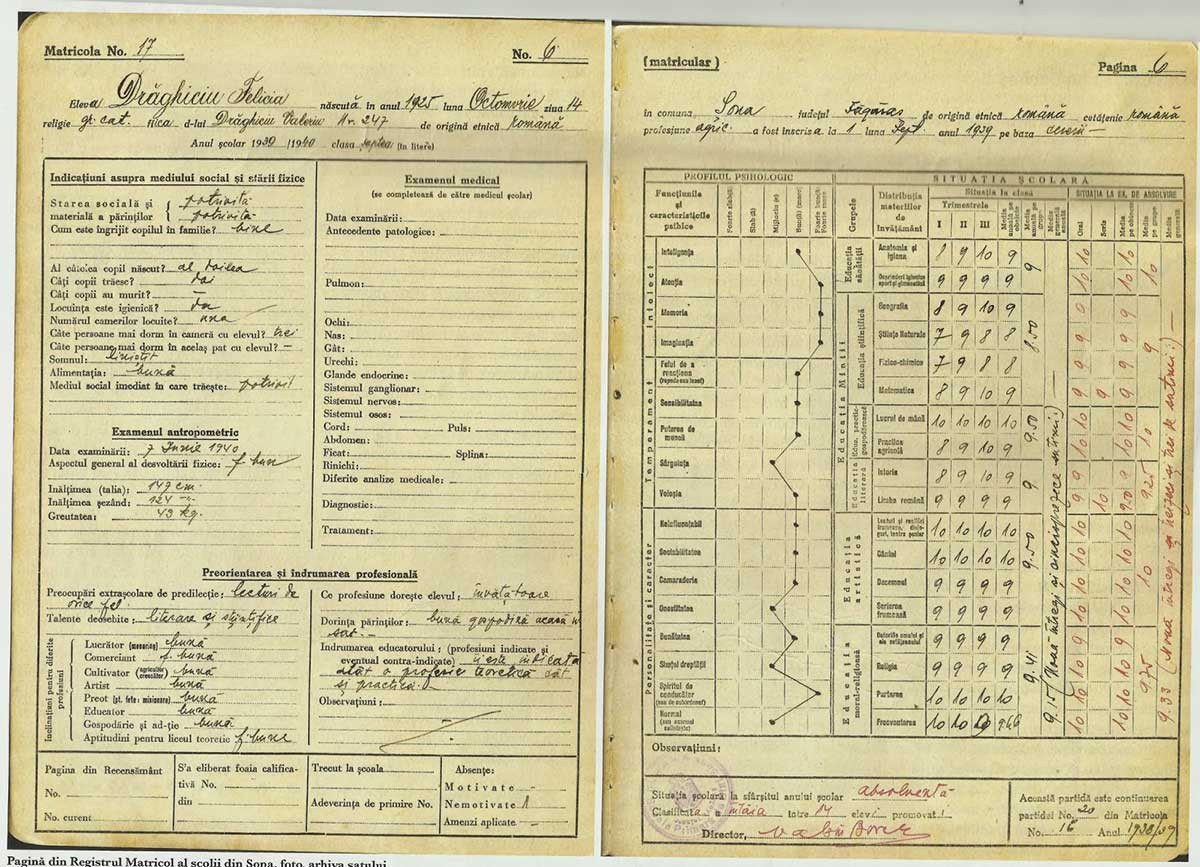 Matricola No. 17
No. 6
Eleva Drăghiciu Felicia născută în anul 1925 luna Octomvrie ziua 14
religie gr. cat. fiica d-lui Drăghiciu Valeriu Nr. 247 de origină etnică română
Anul școlar 1939 /1940 clasa șaptea (în litere)
Indicațiuni asupra mediului social și stării fizice
Starea socială și potrivită
materială a părinților potrivită
Cum este îngrijit copilul în familie? bine
Al câtelea copil născut? al doilea
Câți copii trăesc? doi
Câți copii au murit? —
Locuința este igienică? da
Numărul camerilor locuite? una
Câte persoane mai dorm în cameră cu elevul? trei
Câte persoane mai dorm în acelaș pat cu elevul? —
Somnul: liniștit
Alimentația: bună
Mediul social imediat în care trăește: potrivit
Examenul antropometric
Data examinării: 7 Iunie 1940
Aspectul general al desvoltării fizice: f. bun
Inălțimea (talia): 149 cm.
Inălțimea șezând: 124
Greutatea: 43 kg.
Examenul medical
(se completează de către medicul școlar)
Data examinării:
Antecedente patologice:
Pulmon:
Ochi:
Nas:
Gât:
Urechi:
Glande endocrine:
Sistemul ganglionar:
Sistemul nervos:
Sistemul osos:
Cord: Puls:
Abdomen:
Ficat: Splina:
Rinichi:
Diferite analize medicale:
Diagnostic:
Tratament:
Preorientarea și îndrumarea profesională
Preocupări extrașcolare de predilecție: lecturi de
orice fel
Talente deosebite: literare și științifice
Inclinațiuni pentru diferite profesiuni
Lucrător (meseriaș) bună
Comerciant f. bună
Cultivator (agricultor crescător) bună
Artist bună
Preot (pt. fete: misionare) bună
Educator bună
Gospodărie și ad-ție bună
Aptitudini pentru liceul teoretic f. bune
Ce profesiune dorește elevul: învățătoare
Dorința părinților: bună gospodină acasă în
sat. —
Indrumarea educatorului: (profesiuni indicate și
eventual contra-indicate) îi este indicată
atât o profesie teoretică cât
și practică. —
Observațiuni:
Pagina din Recensământ
No.
No. curent
S'a eliberat foaia califica-
tivă No.
din
Trecut la școala
Adeverința de primire No.
Absențe:
Motivate —
Nemotivate 1
Amenzi aplicate —
(matricular)
Pagina 6
în comuna Șona județul Făgăraș de origină etnică română cetățenie română
profesiune agric. a fost înscrisă la 1 luna Sept. anul 1939 pe baza cererii —
PROFILUL PSIHOLOGIC
Funcțiunile și caracteristicile psihice
Foarte slab(ă)
Slab (ă)
Mijlociu (e)
Bun(ă) (mare)
Intelect
Inteligența
Atenția
Memoria
Imaginația
Temperament
Felul de a reacționa (repede sau încet)
Sensibilitatea
Puterea de muncă
Sârguința
Voioșia
Personalitate și caracter
Sociabilitatea
Camaraderia
Onestitatea
Bunătatea
Simțul dreptății
Spiritul de conducător (sau de subordonat)
Normal
SITUAȚIA ȘCOLARĂ
Grupele
Distribuția materiilor de învățământ
Situația la clasă
Trimestrele
I II III
SITUAȚIA LA EX. DE ABSOLVIRE
Oral
Scris
Educația sănătății
Anatomia și igiena 8 9 10 9
Deprinderi igienice sport și gimnastică 9 9 9 9
9
Educația Minții
Educația științifică
Geografia 8 9 10 9
Științe Naturale 7 9 8 8
Fizico-chimice 7 9 8 8
Matematica 8 9 10 9
8.50
Educ. practic-gospodărească
Lucrul de mână 10 10 10 10
Practica agricolă 8 9 10 9
9.50
Educația literară
Istoria 8 9 10 9
Limba română 9 9 9 9
9
Educația artistică
Cântul 10 10 10 10
Desemnul 9 9 9 9
Scrierea frumoasă 9 9 9 9
9.50
Educația moral-religioasă
Datoriile omului și ale cetățeanului 9 9 9 9
Religia 9 9 9 9
Purtarea 10 10 10 10
Frecventarea 10 10
9.41
9.15 (Nouă întregi și cincisprezece sutimi)
9.33 (Nouă întregi și treizeci și trei sutimi) —
Observațiuni:
Situația școlară la sfârșitul anului școlar absolventă
Clasificată a întâia între elevi promovați
Director,
Această partidă este continuarea
partidei No. 20 din Matricola
No. 16 Anul 1938/39
Pagină din Registrul Matricol al școlii din Șona, foto, arhiva satului